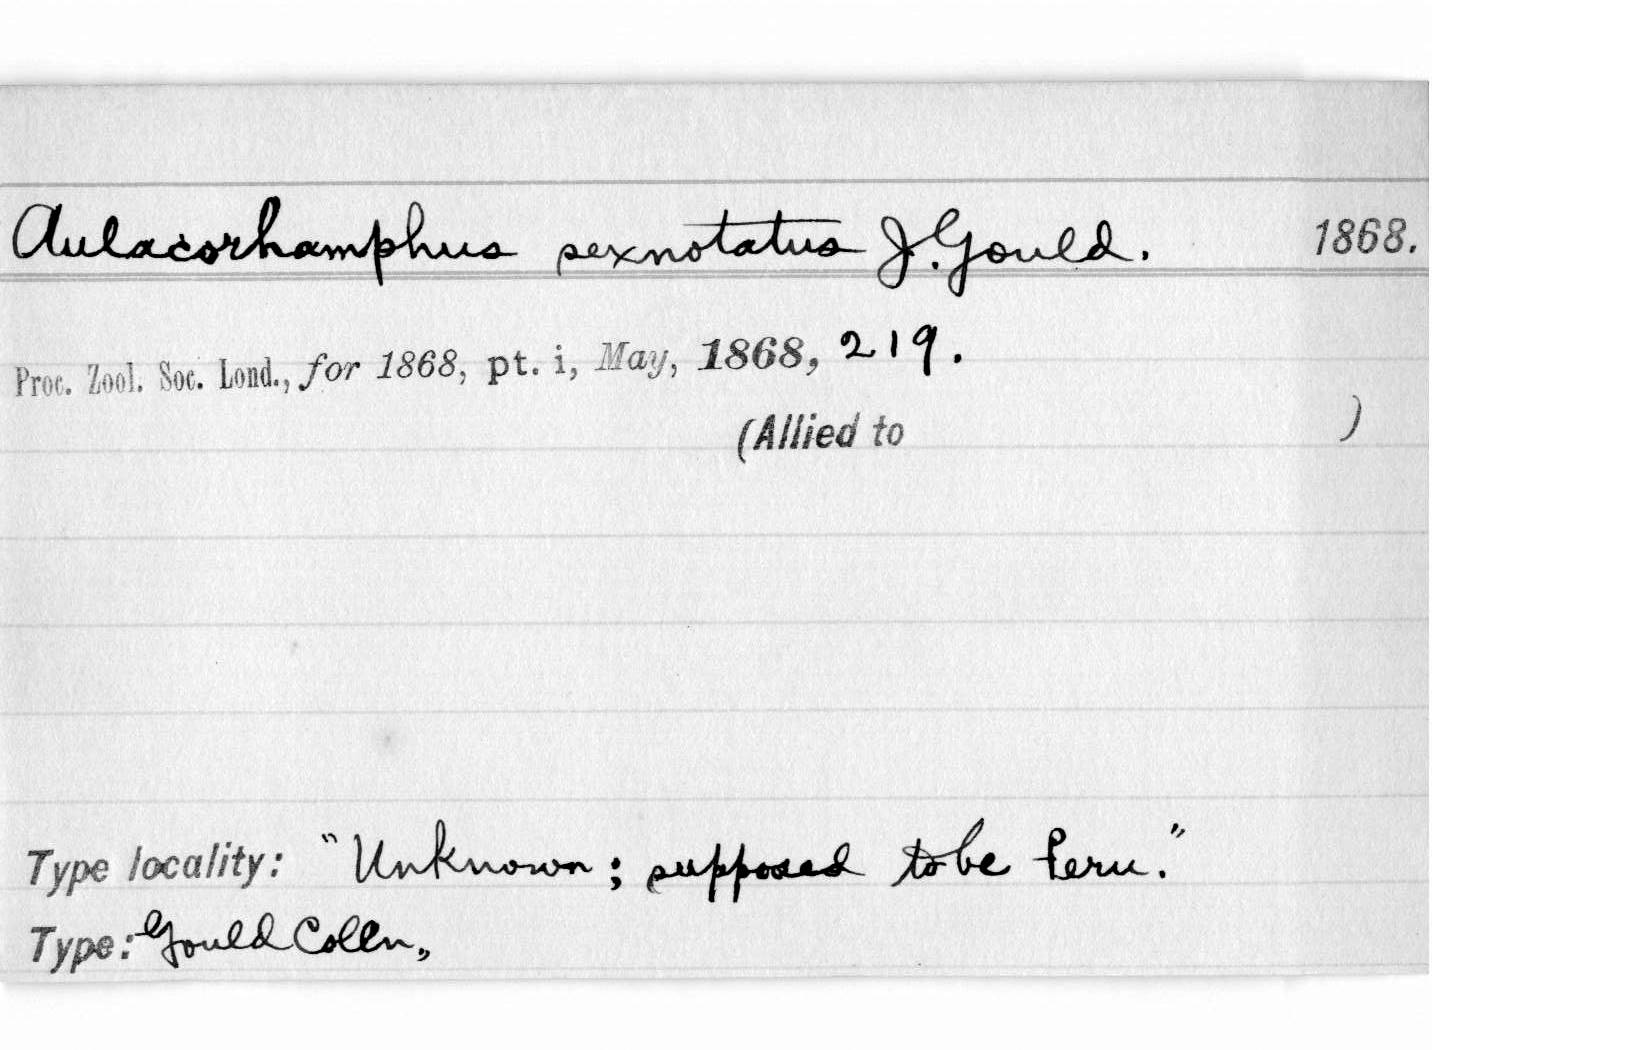 Aulacorhamphus sexnotatus J. Gould. 1868.
Proc. Zool. Soc. Lond., for 1868, pt. i, May, 1868, 219.
(Allied to )
Type locality: "Unknown; supposed to be Peru."
Type: Gould Colln.,